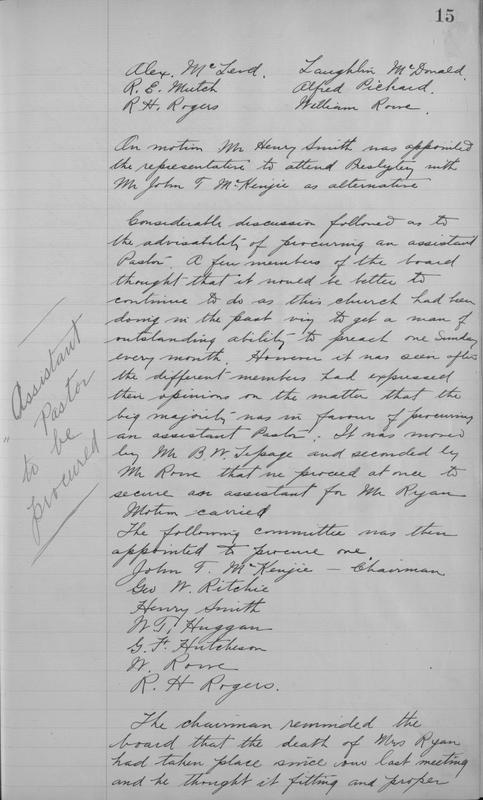 15
Alex. McLeod. Laughlin McDonald.
R. E. Mutch Alfred Pichard.
R. H. Rogers William Rowe.
On motion Mr Henry Smith was appointed
the representative to attend Presbytery with
Mr John T. McKenzie as alternative
Considerable discussion followed as to
the advisability of procuring an assistant
Pastor. A few members of the board
thought that it would be better to
continue to do as this church had been
doing in the past viz to get a man of
outstanding ability to preach one Sunday
every month. However it was seen after
the different members had expressed
their opinions on the matter that the
big majority was in favour of procuring
an assistant Pastor. It was moved
by Mr B. W. Lepage and seconded by
Mr Rowe that we proceed at once to
secure an assistant for Mr Ryan
Motion carried
The following committee was then
appointed to procure one.
John T. McKenzie - Chairman
Geo W. Ritchie
Henry Smith
W. T. Huggan
G. F. Hutcheson
W. Rowe
R. H Rogers.
The chairman reminded the
board that the death of Mrs Ryan
had taken place since our last meeting
and he thought it fitting and proper
" Assistant
Pastor
to be
procured